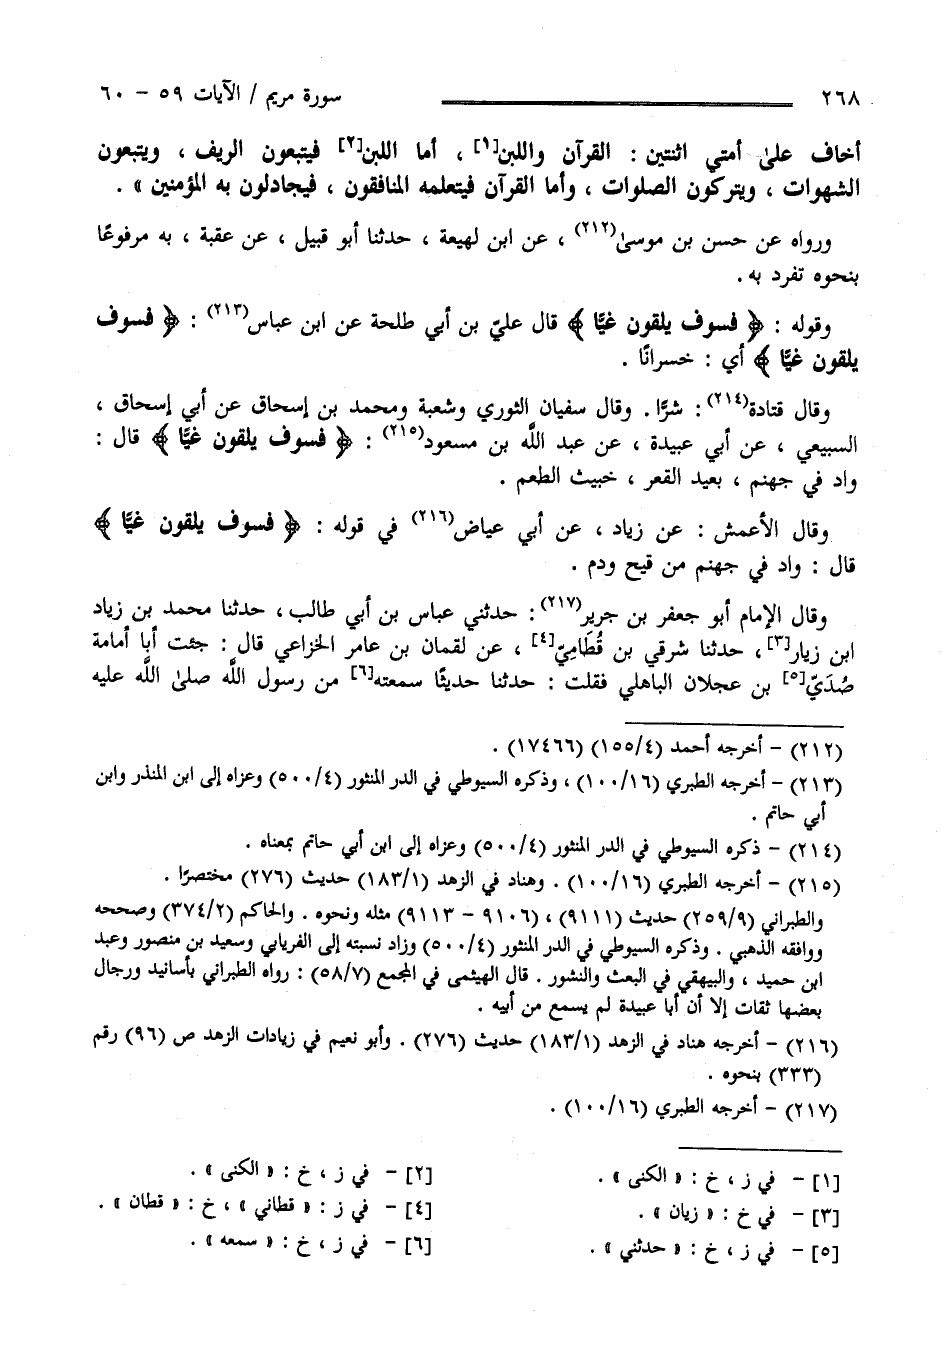 ٢٦٨ سورة مريم / الآيات ٥٩ - ٦٠
أخاف على أمتي اثنتين : القرآن واللبن[١] ، أما اللبن[٢] فيتبعون الريف ، ويتبعون
الشهوات ، ويتركون الصلوات ، وأما القرآن فيتعلمه المنافقون ، فيجادلون به المؤمنين » .
ورواه عن حسن بن موسى(٢١٢) ، عن ابن لهيعة ، حدثنا أبو قبيل ، عن عقبة ، به مرفوعًا
بنحوه تفرد به .
وقوله : ﴿ فسوف يلقون غيًّا ﴾ قال عليّ بن أبي طلحة عن ابن عباس(٢١٣) : ﴿ فسوف
يلقون غيًّا ﴾ أي : خسرانًا .
وقال قتادة(٢١٤) : شرًّا . وقال سفيان الثوري وشعبة ومحمد بن إسحاق عن أبي إسحاق ،
السبيعي ، عن أبي عبيدة ، عن عبد اللَّه بن مسعود(٢١٥) : ﴿ فسوف يلقون غيًّا ﴾ قال :
واد في جهنم ، بعيد القعر ، خبيث الطعم .
وقال الأعمش : عن زياد ، عن أبي عياض(٢١٦) في قوله : ﴿ فسوف يلقون غيًّا ﴾
قال : واد في جهنم من قيح ودم .
وقال الإمام أبو جعفر بن جرير(٢١٧) : حدثني عباس بن أبي طالب ، حدثنا محمد بن زياد
ابن زيار[٣] ، حدثنا شرقي بن قُطَامِيّ[٤] ، عن لقمان بن عامر الخزاعي قال : جئت أبا أمامة
صُدَيّ[٥] بن عجلان الباهلي فقلت : حدثنا حديثًا سمعته[٦] من رسول اللَّه صلى اللَّه عليه
(٢١٢) - أخرجه أحمد (١٥٥/٤) (١٧٤٦٦) .
(٢١٣) - أخرجه الطبري (١٠٠/١٦) ، وذكره السيوطي في الدر المنثور (٥٠٠/٤) وعزاه إلى ابن المنذر وابن
أبي حاتم .
(٢١٤) - ذكره السيوطي في الدر المنثور (٥٠٠/٤) وعزاه إلى ابن أبي حاتم بمعناه .
(٢١٥) - أخرجه الطبري (١٠٠/١٦) . وهناد في الزهد (١٨٣/١) حديث (٢٧٦) مختصرًا .
والطبراني (٢٥٩/٩) حديث (٩١١١) ، (٩١٠٦ - ٩١١٣) مثله ونحوه . والحاكم (٣٧٤/٢) وصححه
ووافقه الذهبي . وذكره السيوطي في الدر المنثور (٥٠٠/٤) وزاد نسبته إلى الفريابي وسعيد بن منصور وعبد
ابن حميد ، والبيهقي في البعث والنشور . قال الهيثمى في المجمع (٥٨/٧) : رواه الطبراني بأسانيد ورجال
بعضها ثقات إلا أن أبا عبيدة لم يسمع من أبيه .
(٢١٦) - أخرجه هناد في الزهد (١٨٣/١) حديث (٢٧٦) . وأبو نعيم في زيادات الزهد ص (٩٦) رقم
(٣٣٣) بنحوه .
(٢١٧) - أخرجه الطبري (١٠٠/١٦) .
[١] - في ز ، خ : « الكنى » . [٢] - في ز ، خ : « الكنى » .
[٣] - في خ : « زيان » . [٤] - في ز : « قطاني » ، خ : « قطان » .
[٥] - في ز ، خ : « حدثني » . [٦] - في ز ، خ : « سمعه » .